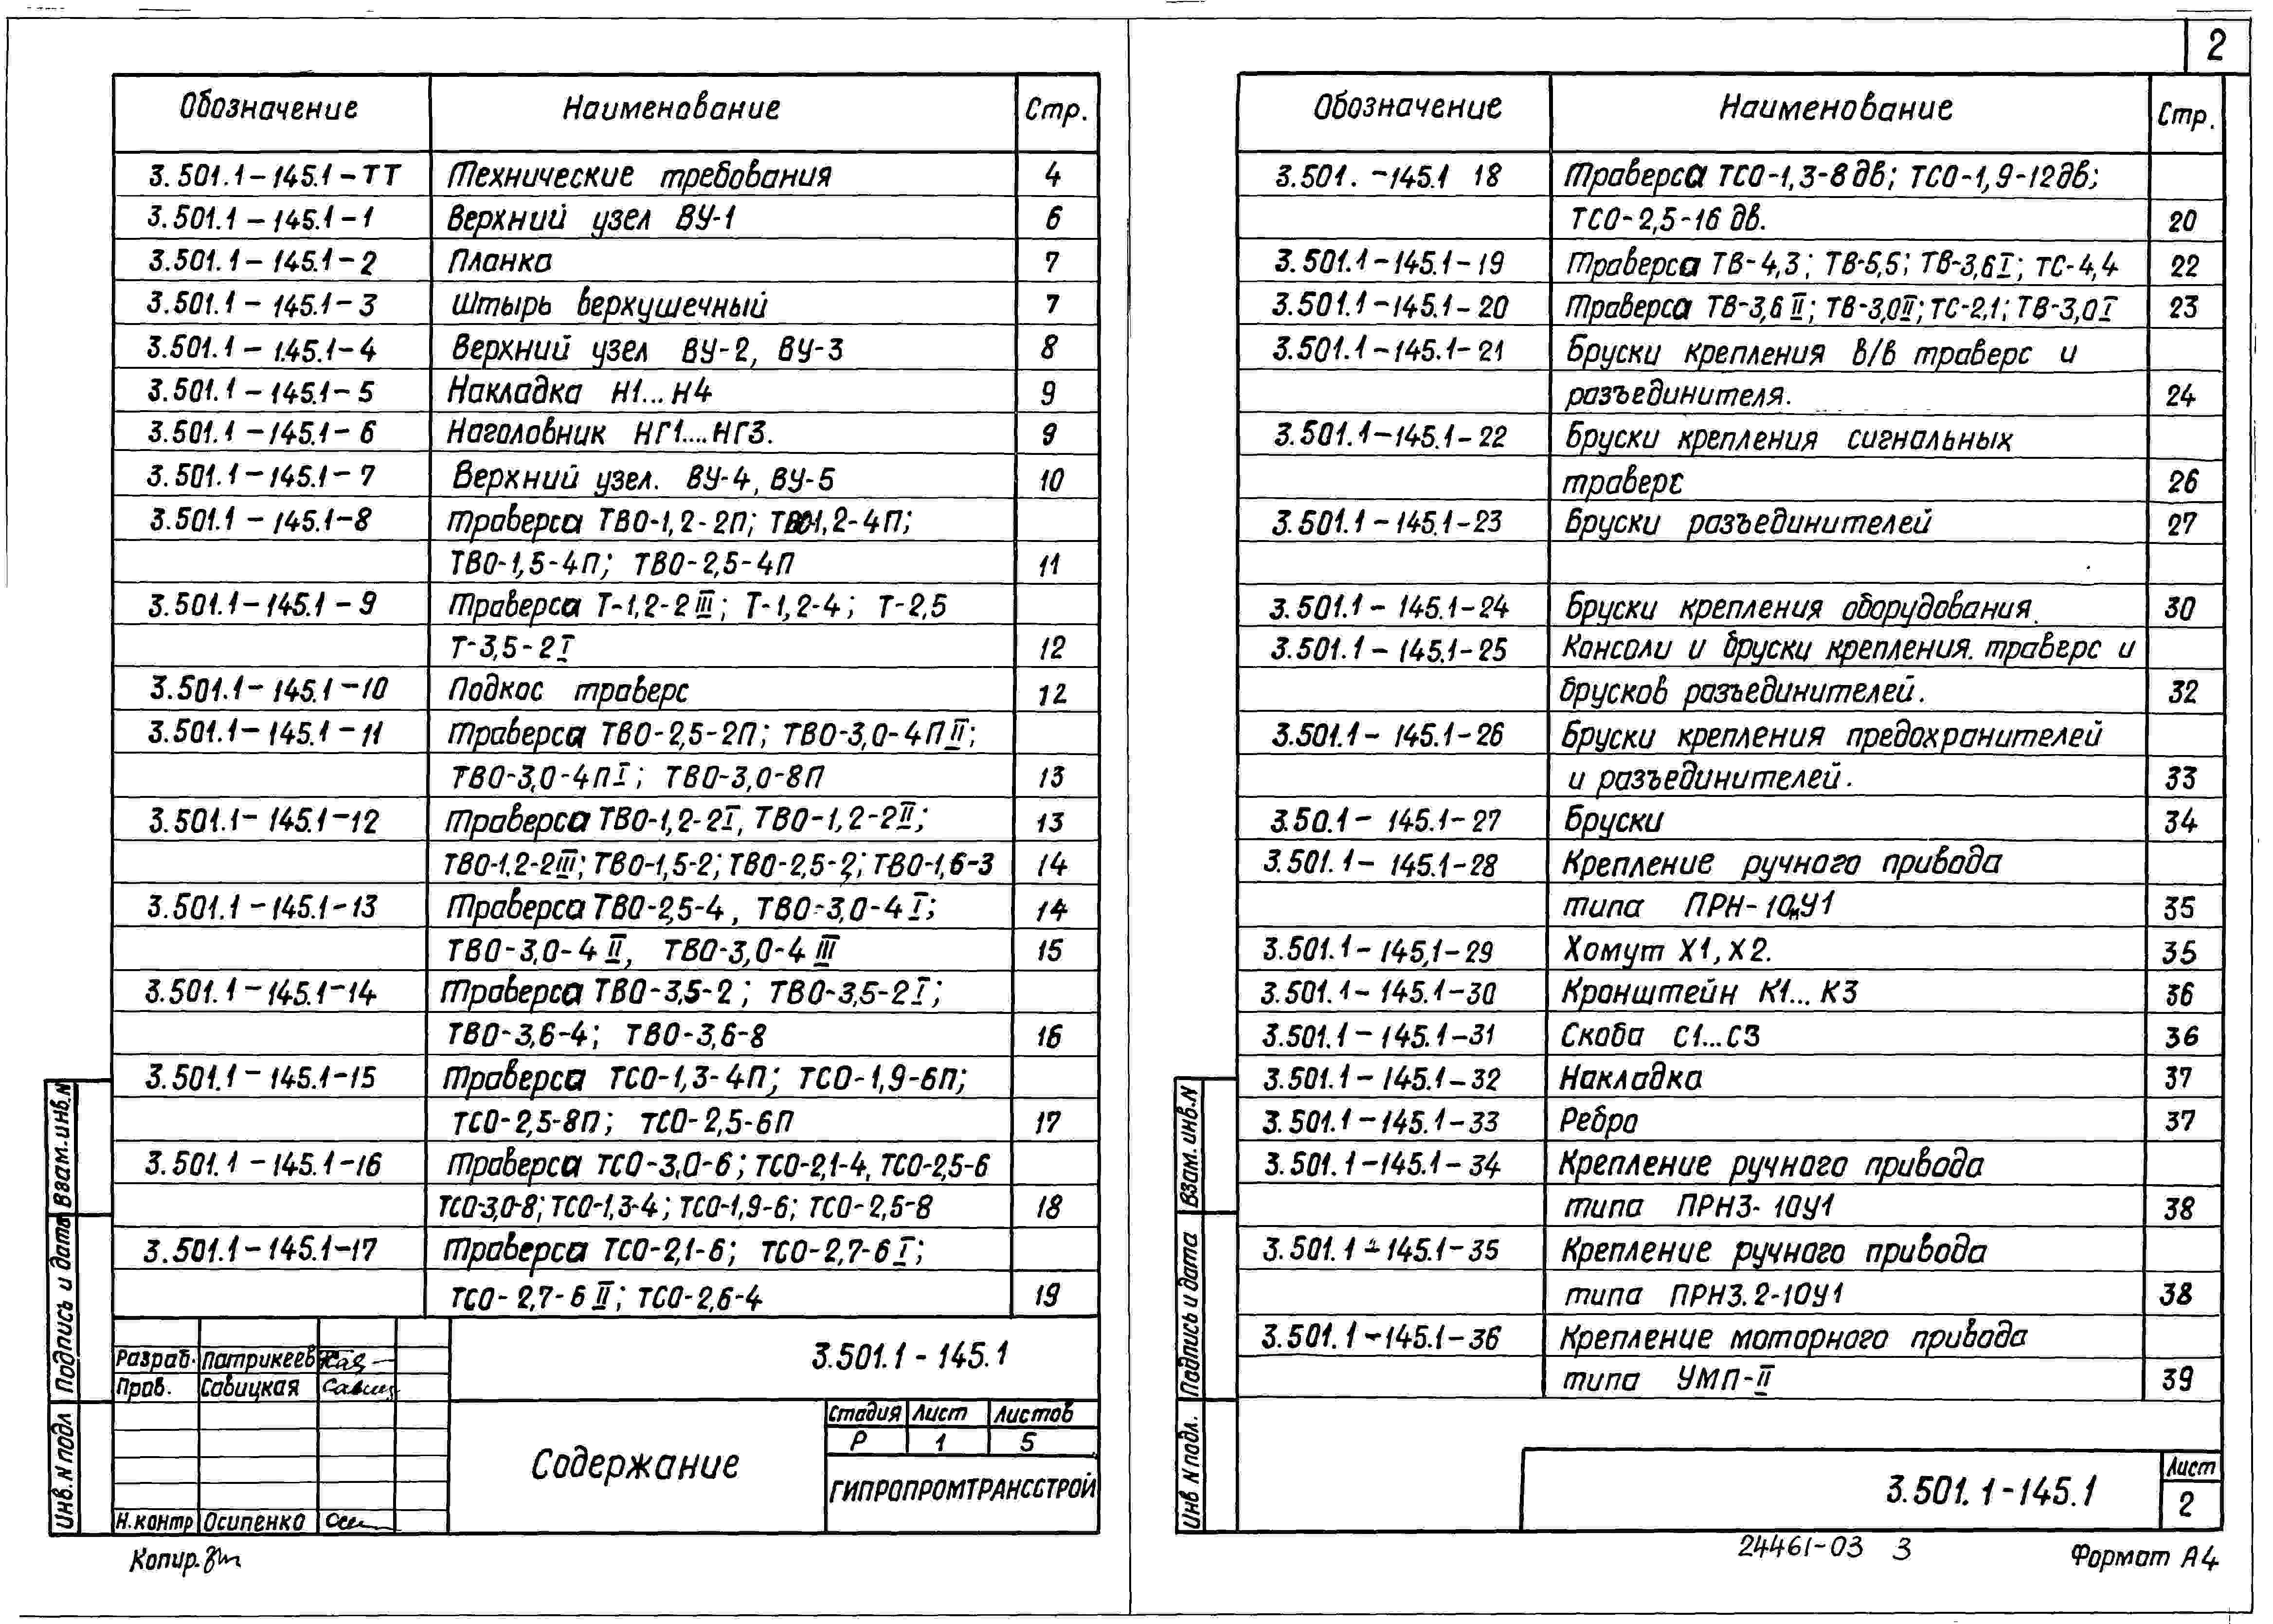 2
Обозначение Наименование Стр.
3.501.1-145.1-ТТ Технические требования 4
3.501.1-145.1-1 Верхний узел ВУ-1 6
3.501.1-145.1-2 Планка 7
3.501.1-145.1-3 Штырь верхушечный 7
3.501.1-145.1-4 Верхний узел ВУ-2, ВУ-3 8
3.501.1-145.1-5 Накладка Н1...Н4 9
3.501.1-145.1-6 Наголовник НГ1....НГ3. 9
3.501.1-145.1-7 Верхний узел. ВУ-4, ВУ-5 10
3.501.1-145.1-8 Траверса ТВО-1,2-2П; ТВО-1,2-4П;
ТВО-1,5-4П; ТВО-2,5-4П 11
3.501.1-145.1-9 Траверса Т-1,2-2III; Т-1,2-4; Т-2,5
Т-3,5-2I 12
3.501.1-145.1-10 Подкос траверс 12
3.501.1-145.1-11 Траверса ТВО-2,5-2П; ТВО-3,0-4ПII;
ТВО-3,0-4ПI; ТВО-3,0-8П 13
3.501.1-145.1-12 Траверса ТВО-1,2-2I, ТВО-1,2-2II; 13
ТВО-1.2-2III; ТВО-1,5-2; ТВО-2,5-2; ТВО-1,6-3 14
3.501.1-145.1-13 Траверса ТВО-2,5-4, ТВО-3,0-4I; 14
ТВО-3,0-4II, ТВО-3,0-4III 15
3.501.1-145.1-14 Траверса ТВО-3,5-2; ТВО-3,5-2I;
ТВО-3,6-4; ТВО-3,6-8 16
3.501.1-145.1-15 Траверса ТСО-1,3-4П; ТСО-1,9-6П;
ТСО-2,5-8П; ТСО-2,5-6П 17
3.501.1-145.1-16 Траверса ТСО-3,0-6; ТСО-2,1-4, ТСО-2,5-6
ТСО-3,0-8; ТСО-1,3-4; ТСО-1,9-6; ТСО-2,5-8 18
3.501.1-145.1-17 Траверса ТСО-2,1-6; ТСО-2,7-6I;
ТСО-2,7-6II; ТСО-2,6-4 19
3.501.1-145.1
Разраб. Патрикеев
Пров. Савицкая
Содержание
Стадия Лист Листов
Р 1 5
ГИПРОПРОМТРАНССТРОЙ
Н.контр Осипенко
Взам.инв.N
Подпись и дата
Инв.N подл
Копир.
Обозначение Наименование Стр.
3.501. -145.1 18 Траверса ТСО-1,3-8дв; ТСО-1,9-12дв;
ТСО-2,5-16дв. 20
3.501.1-145.1-19 Траверса ТВ-4,3; ТВ-5,5; ТВ-3,6I; ТС-4,4 22
3.501.1-145.1-20 Траверса ТВ-3,6II; ТВ-3,0II; ТС-2,1; ТВ-3,0I 23
3.501.1-145.1-21 Бруски крепления в/в траверс и
разъединителя. 24
3.501.1-145.1-22 Бруски крепления сигнальных
траверс 26
3.501.1-145.1-23 Бруски разъединителей 27
3.501.1-145.1-24 Бруски крепления оборудования. 30
3.501.1-145.1-25 Консоли и бруски крепления. траверс и
брусков разъединителей. 32
3.501.1-145.1-26 Бруски крепления предохранителей
и разъединителей. 33
3.50.1-145.1-27 Бруски 34
3.501.1-145.1-28 Крепление ручного привода
типа ПРН-10мУ1 35
3.501.1-145,1-29 Хомут Х1, Х2. 35
3.501.1-145.1-30 Кронштейн К1... К3 36
3.501.1-145.1-31 Скоба С1...С3 36
3.501.1-145.1-32 Накладка 37
3.501.1-145.1-33 Ребро 37
3.501.1-145.1-34 Крепление ручного привода
типа ПРН3-10У1 38
3.501.1-145.1-35 Крепление ручного привода
типа ПРН3.2-10У1 38
3.501.1-145.1-36 Крепление моторного привода
типа УМП-II 39
Взам.инв.N
Подпись и дата
Инв N подл.
3.501.1-145.1
Лист
2
24461-03 3
Формат А4